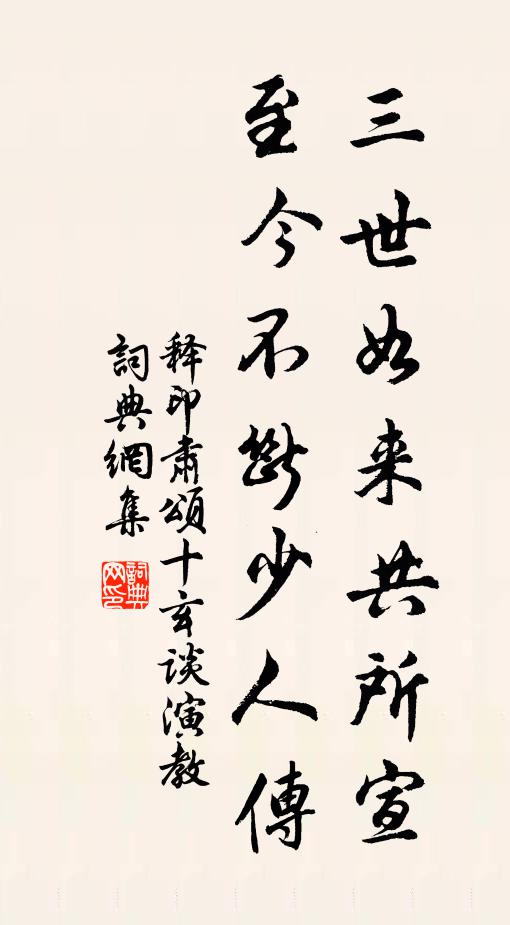 三世如来共所宣
至今不斷少人傳
释印肃頌十玄谈演教
詞典網集
詞典网印